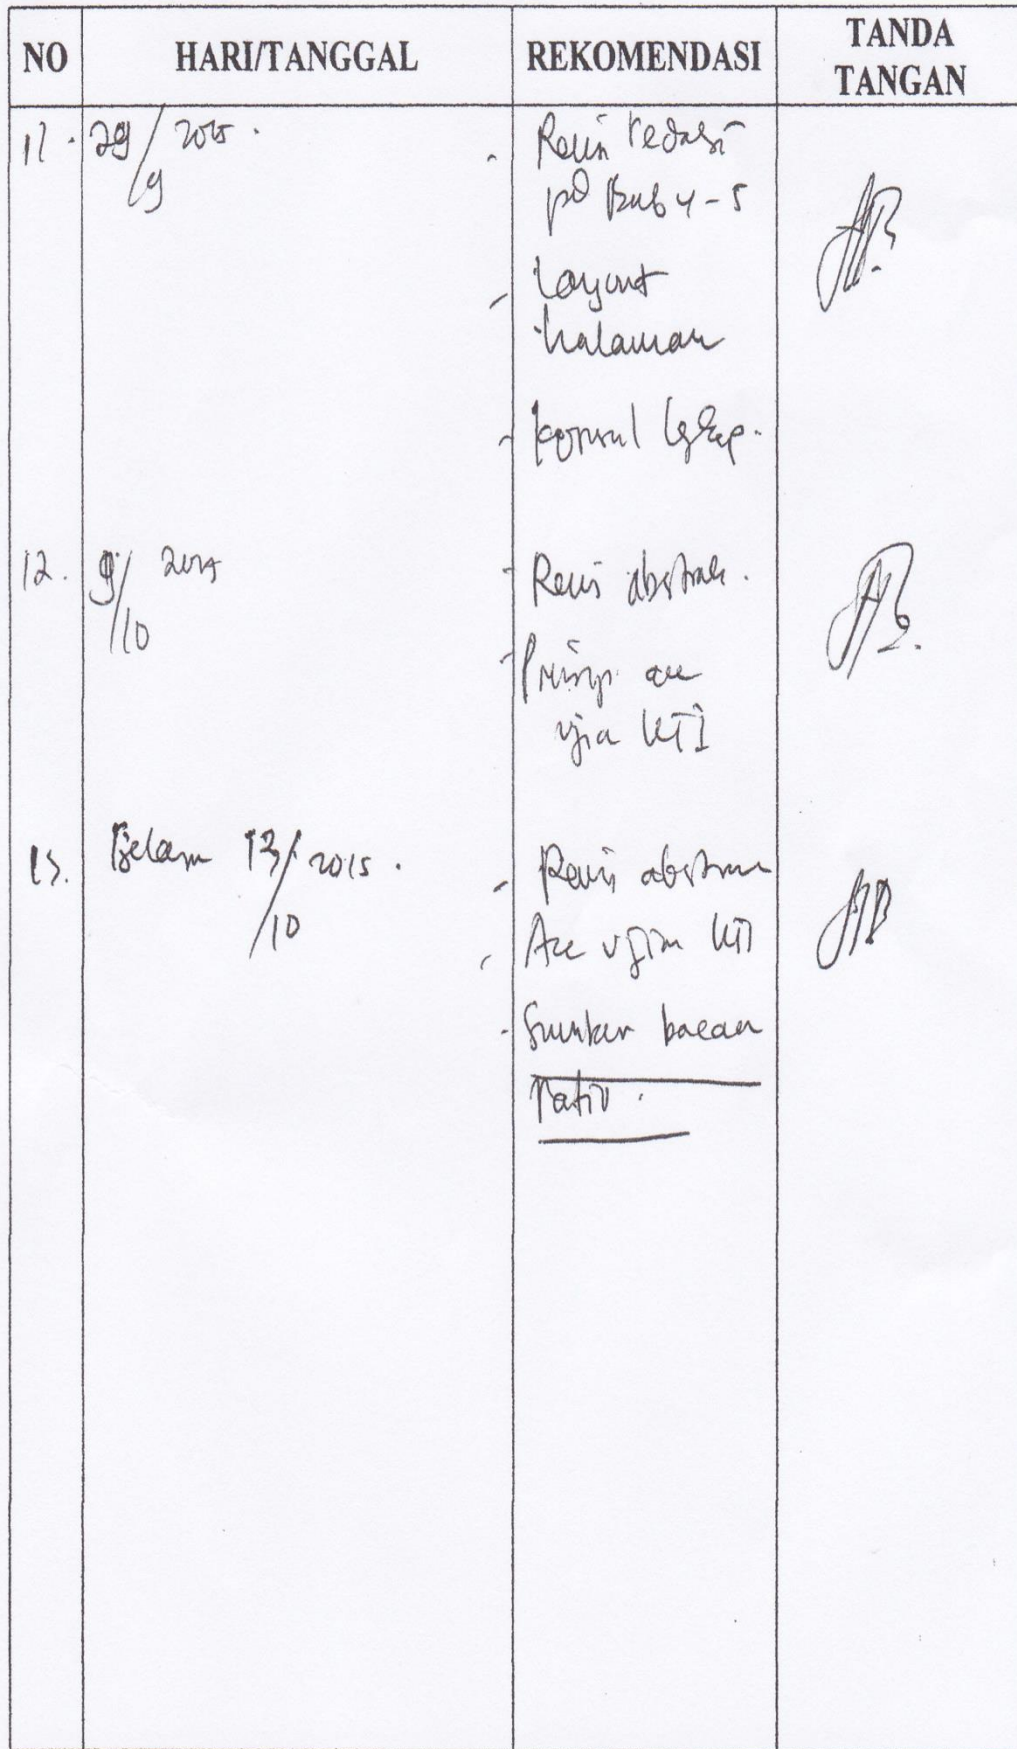 NO HARI/TANGGAL REKOMENDASI TANDA TANGAN
11. 29/9 2015. - Revisi redaksi
pd Bab 4-5
- Layout
halaman
- Konsul lgkp.
12. 9/10 2015 - Revisi abstrak.
- Prinsip acc
ujian KTI
13. 13/10 2015. - Revisi abstrak
- Acc ujian KTI
- Sumber bacaan